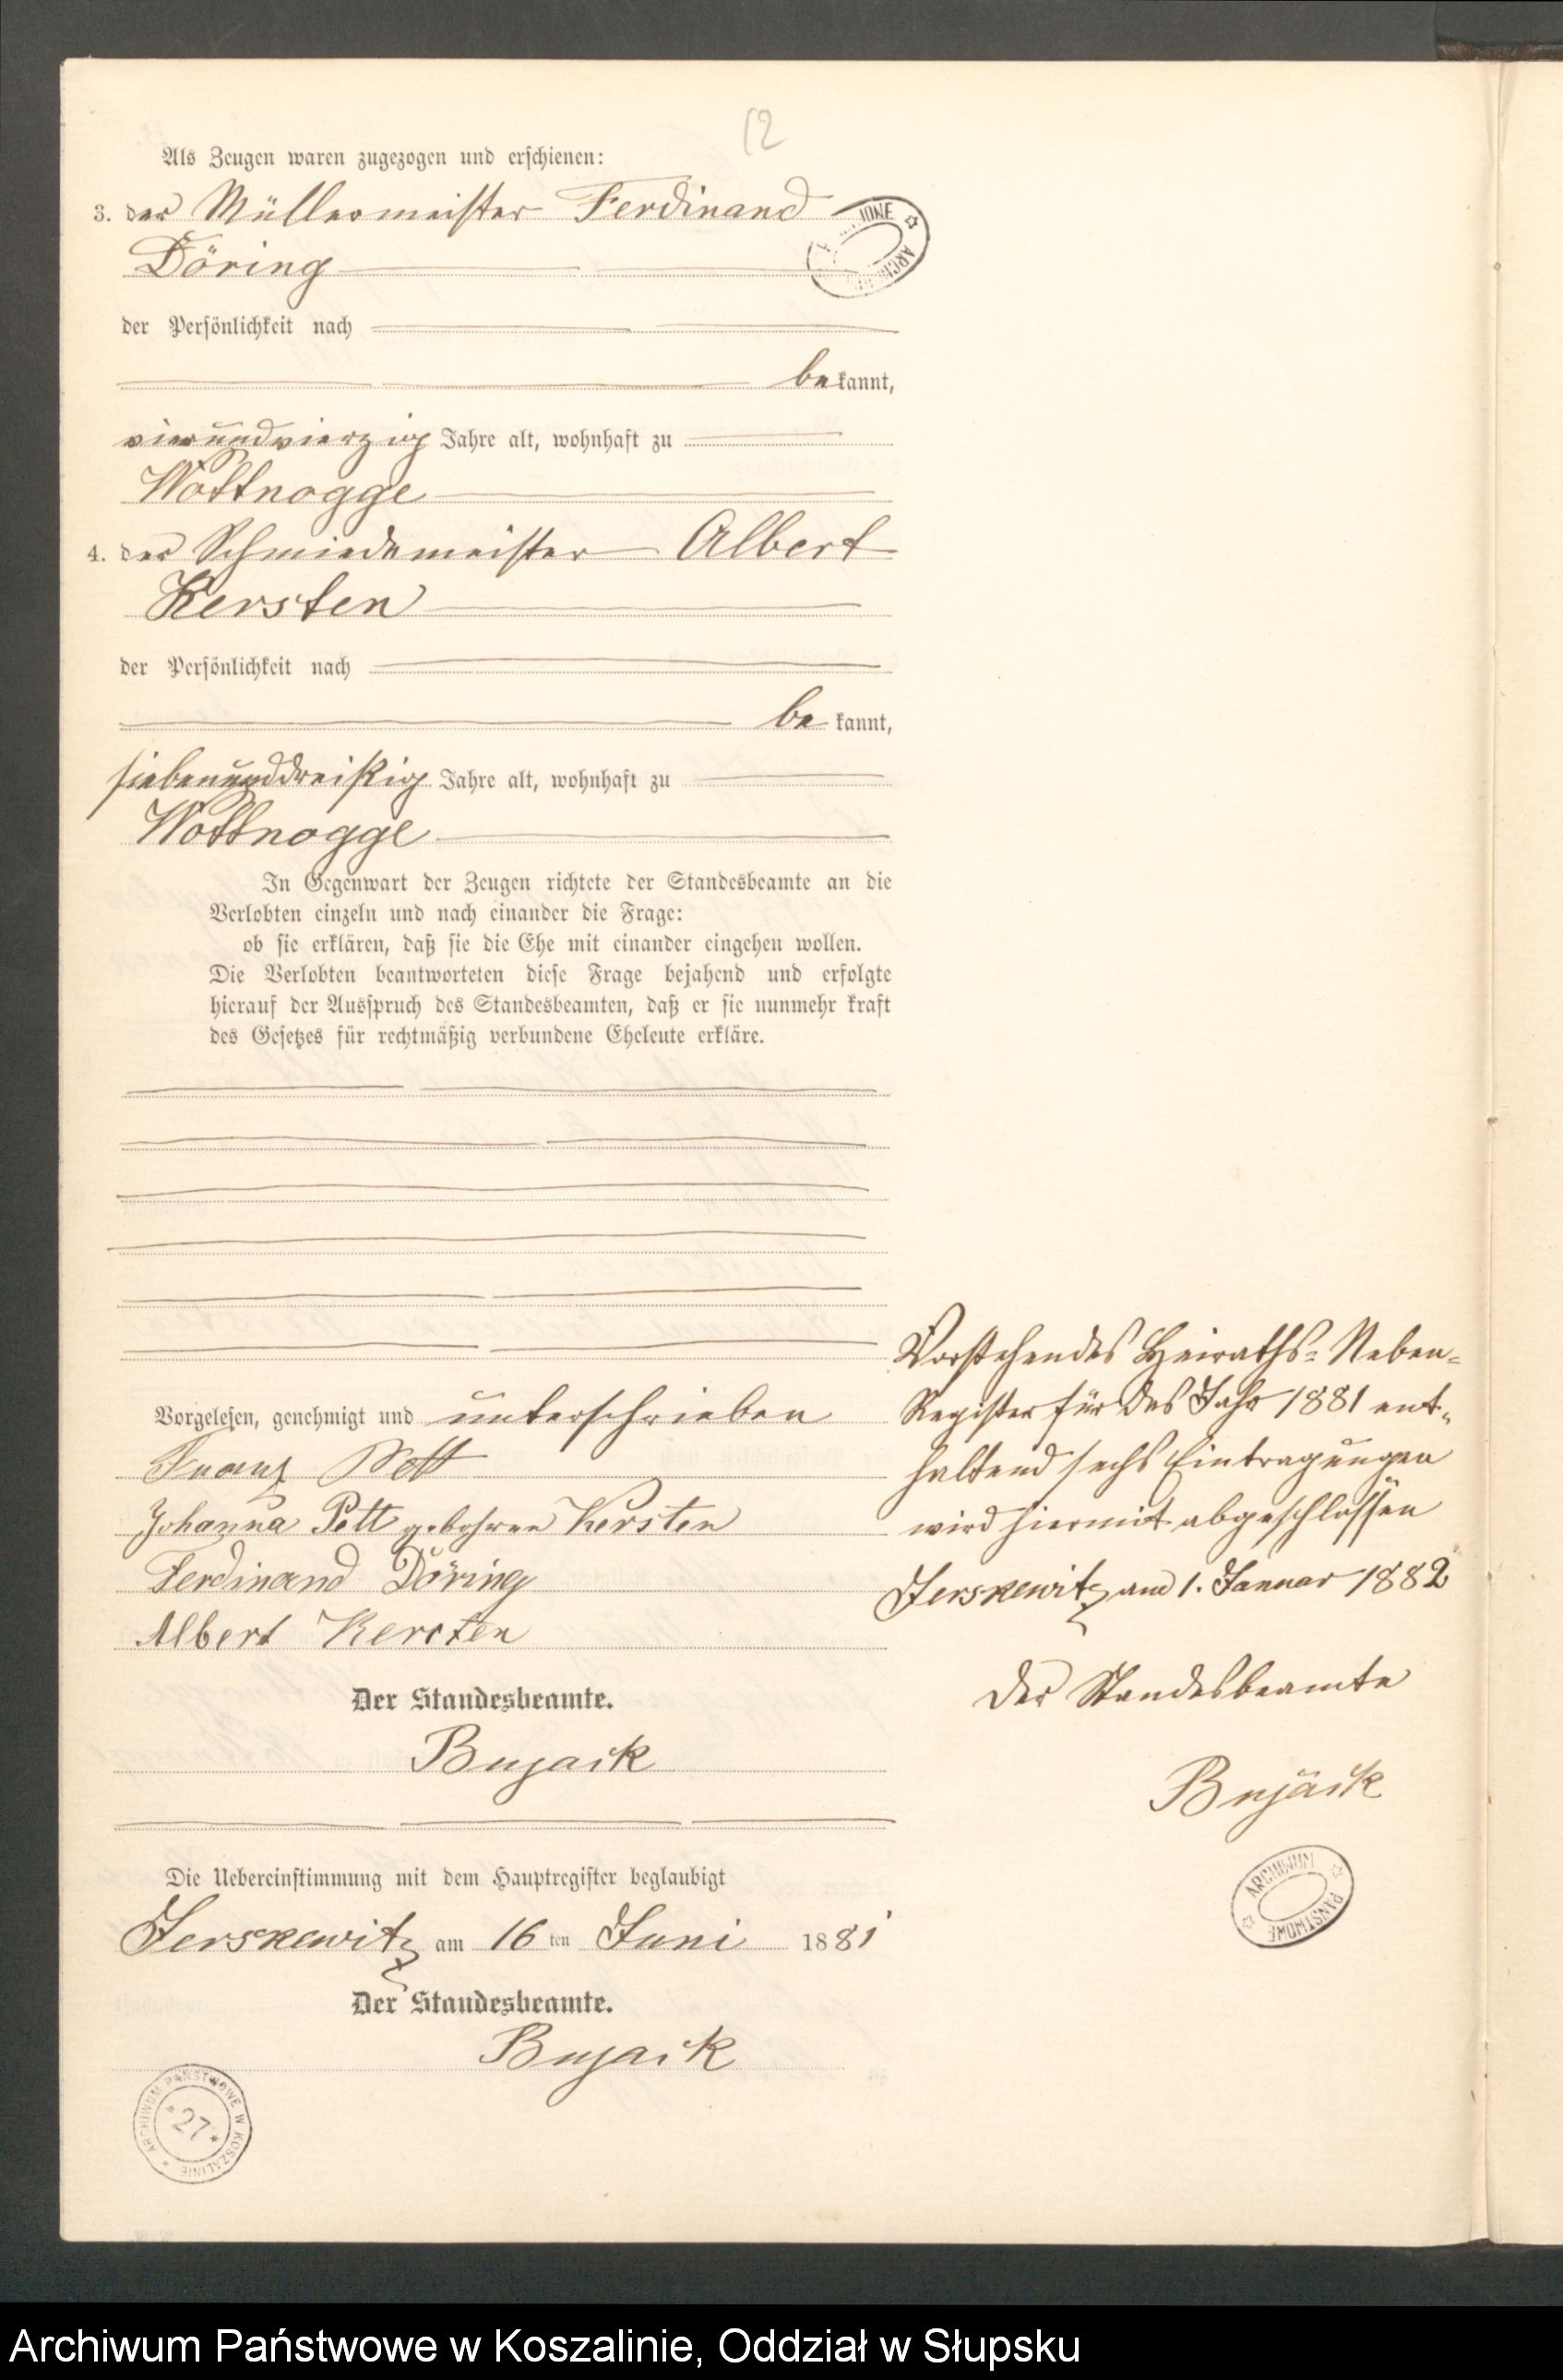 12
Als Zeugen waren zugezogen und erschienen:
3. der Müllermeister Ferdinand
Döring
der Persönlichkeit nach
bekannt,
vierundvierzig Jahre alt, wohnhaft zu
Wottnogge
4. der Schmiedemeister Albert
Kersten
der Persönlichkeit nach
be kannt,
siebenunddreißig Jahre alt, wohnhaft zu
Wottnogge
In Gegenwart der Zeugen richtete der Standesbeamte an die
Verlobten einzeln und nach einander die Frage:
ob sie erklären, daß sie die Ehe mit einander eingehen wollen.
Die Verlobten beantworteten diese Frage bejahend und erfolgte
hierauf der Ausspruch des Standesbeamten, daß er sie nunmehr kraft
des Gesetzes für rechtmäßig verbundene Eheleute erkläre.
Vorgelesen, genehmigt und unterschrieben
Franz Pett
Johanna Pett geborene Kersten
Ferdinand Döring
Albert Kersten
Der Standesbeamte.
Bujack
Die Uebereinstimmung mit dem Hauptregister beglaubigt
Jerskewitz am 16 ten Juni 1881
Der Standesbeamte.
Bujack
Vorstehendes Heiraths-Neben-
Register für das Jahr 1881 ent-
haltend sechs Eintragungen
wird hiermit abgeschlossen
Jerskewitz am 1. Januar 1882
Der Standesbeamte
Bujack
ARCHIWUM PAŃSTWOWE
ARCHIWUM PAŃSTWOWE W KOSZALINIE
*27*
Archiwum Państwowe w Koszalinie, Oddział w Słupsku